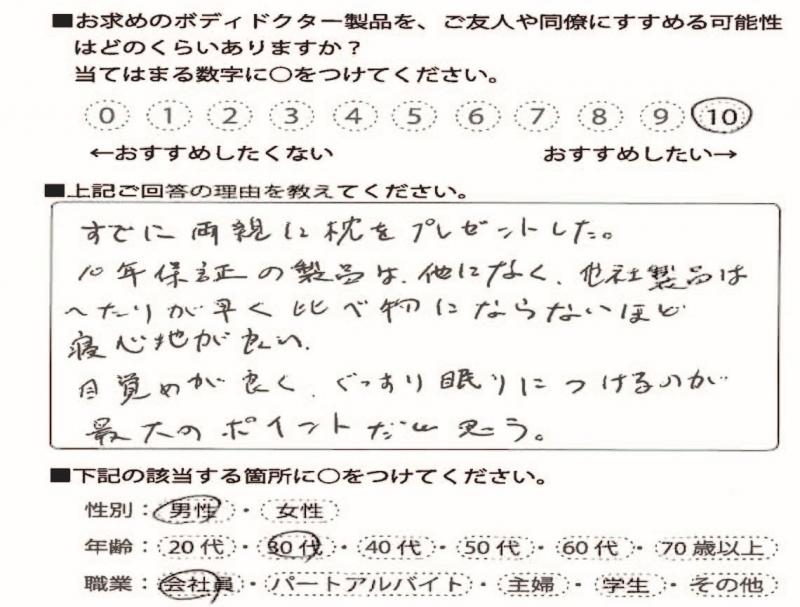 ■お求めのボディドクター製品を、ご友人や同僚にすすめる可能性
はどのくらいありますか？
当てはまる数字に○をつけてください。
0 1 2 3 4 5 6 7 8 9 10
←おすすめしたくない おすすめしたい→
■上記ご回答の理由を教えてください。
すでに両親に枕をプレゼントした。
10年保証の製品は、他になく、他社製品は
へたりが早く比べ物にならないほど
寝心地が良い。
目覚めが良く、ぐっすり眠りにつけるのが
最大のポイントだと思う。
■下記の該当する箇所に○をつけてください。
性別：男性・女性
年齢：20代・30代・40代・50代・60代・70歳以上
職業：会社員・パートアルバイト・主婦・学生・その他